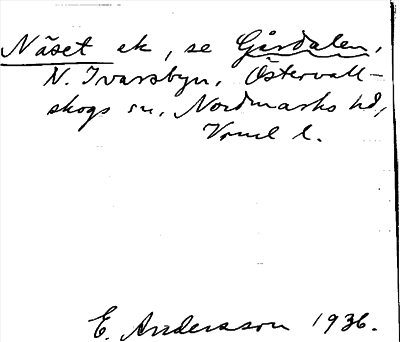 Näset ek, se Gårdalen,
N. Ivarsbyn, Östervall-
skogs sn, Nordmarks hd,
Vrml l.
E. Andersson 1936.